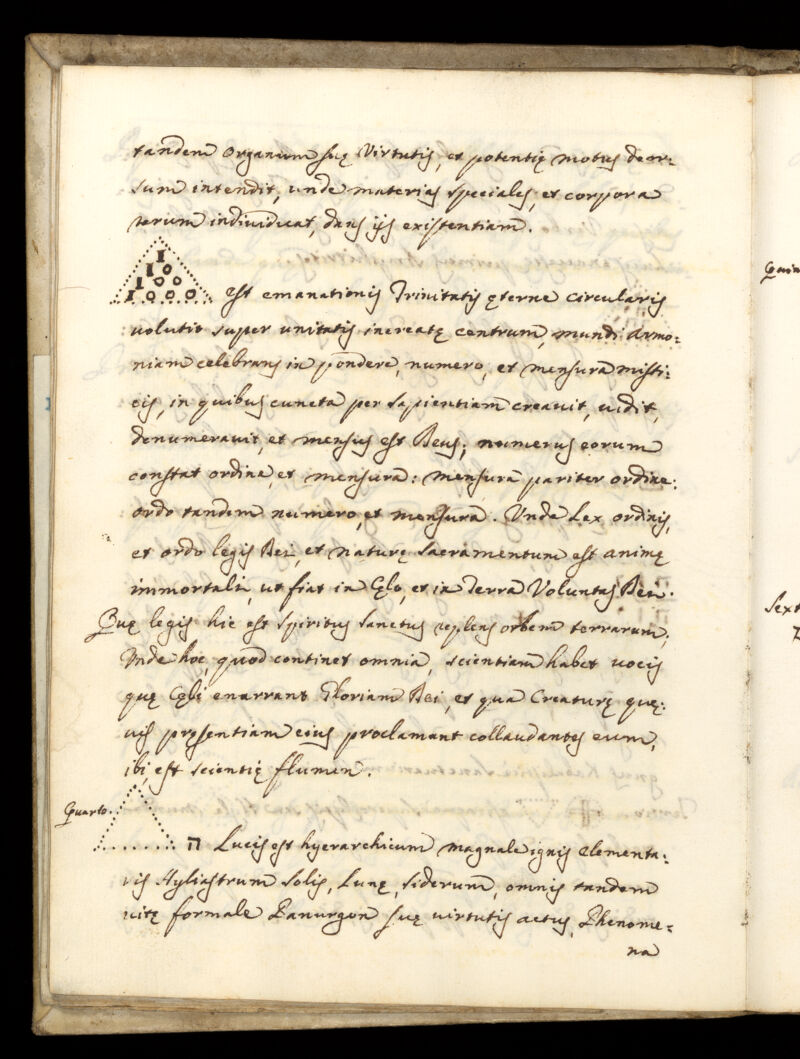 tandem organum suę Virtutis, et potentię motus deor:
sum intendit, unde materias speciales, et corpora
rerum individuat, dans ijs existentiam.
1
1 0
1 0 0
1 0 0 0
est emanationis Trinitatis ęterne circularis
volutio super unitatis increatę centrum, mundi Armo:
niam celebrans in pondere, numero, et mensura misti:
cis, in quibus cuncta per sapientiam creavit, vidit,
denumeravit, et mensus est Deus; numerus eorum
constat ordine, et mensura: mensura pariter ordine:
ordo tandem numero, et mensura. Unde Lex ordinis,
et ordo legis Dei, et naturę sacramentum est animę
immortali, ut fiat in Cęlo, et in Terra Voluntas Dei.
Quę legis hic est Spiritus Sanctus replens orbem terrarum;
Unde hoc, quod continet omnia, scientiam habet vocis
quę Cęli enarrant Gloriam Dei, et qua Creaturę quę:
vis pręsentiam eius proclamant collaudantes eum,
ibi est scientię flumen.
Quarto.
ה Lucis est hyerarchicum magnale ignis elementa:
ris Hyliastrum Solis, Lunę, siderum, omnis tandem
vitę formale Panurgon suę virtutis actus. Phenome:
na
Quin
Sext